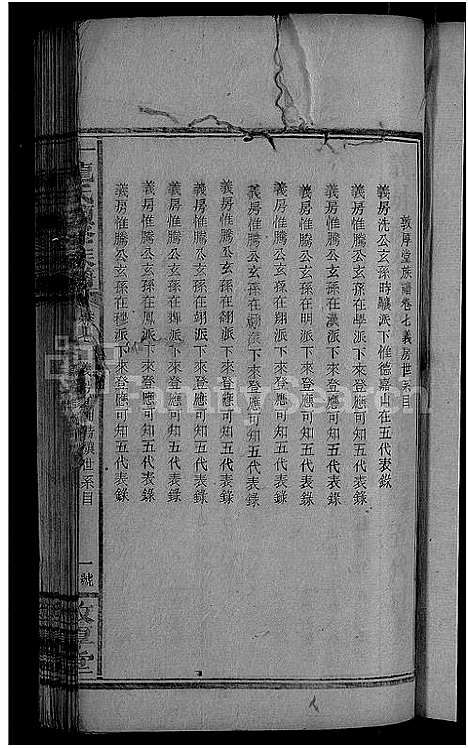 敦厚堂族譜卷七義房世系目
義房洗公玄孫時驤派下惟德嘉山在五代表錄
義房惟騰公玄孫在學派下來登應可知五代表錄
義房惟騰公玄孫在漢派下來登應可知五代表錄
義房惟騰公玄孫在明派下來登應可知五代表錄
義房惟騰公玄孫在翔派下來登應可知五代表錄
義房惟騰公玄孫在 派下來登應可知五代表錄
義房惟騰公玄孫在 派下來登應可知五代表錄
義房惟騰公玄孫在翊派下來登應可知五代表錄
義房惟騰公玄孫在鳳派下來登應可知五代表錄
義房惟騰公玄孫在 派下來登應可知五代表錄
氏 修族譜 世系目 一號 敦厚堂
FamilySearch